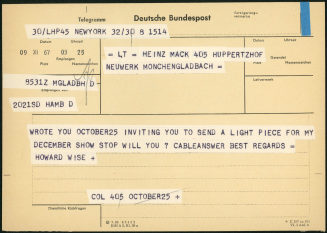 Telegramm
Deutsche Bundespost
30/LHP45 NEWYORK 32/30 8 1514
09 XI 67 03 25
= LT = HEINZ MACK 405 HUPPERTZHOF
NEUWERK MONCHENGLADBACH =
8531Z MGLADBH D
2021SD HAMB D
WROTE YOU OCTOBER25 INVITING YOU TO SEND A LIGHT PIECE FOR MY
DECEMBER SHOW STOP WILL YOU ? CABLEANSWER BEST REGARDS =
HOWARD WISE +
COL 405 OCTOBER25 +
Dienstliche Rückfragen